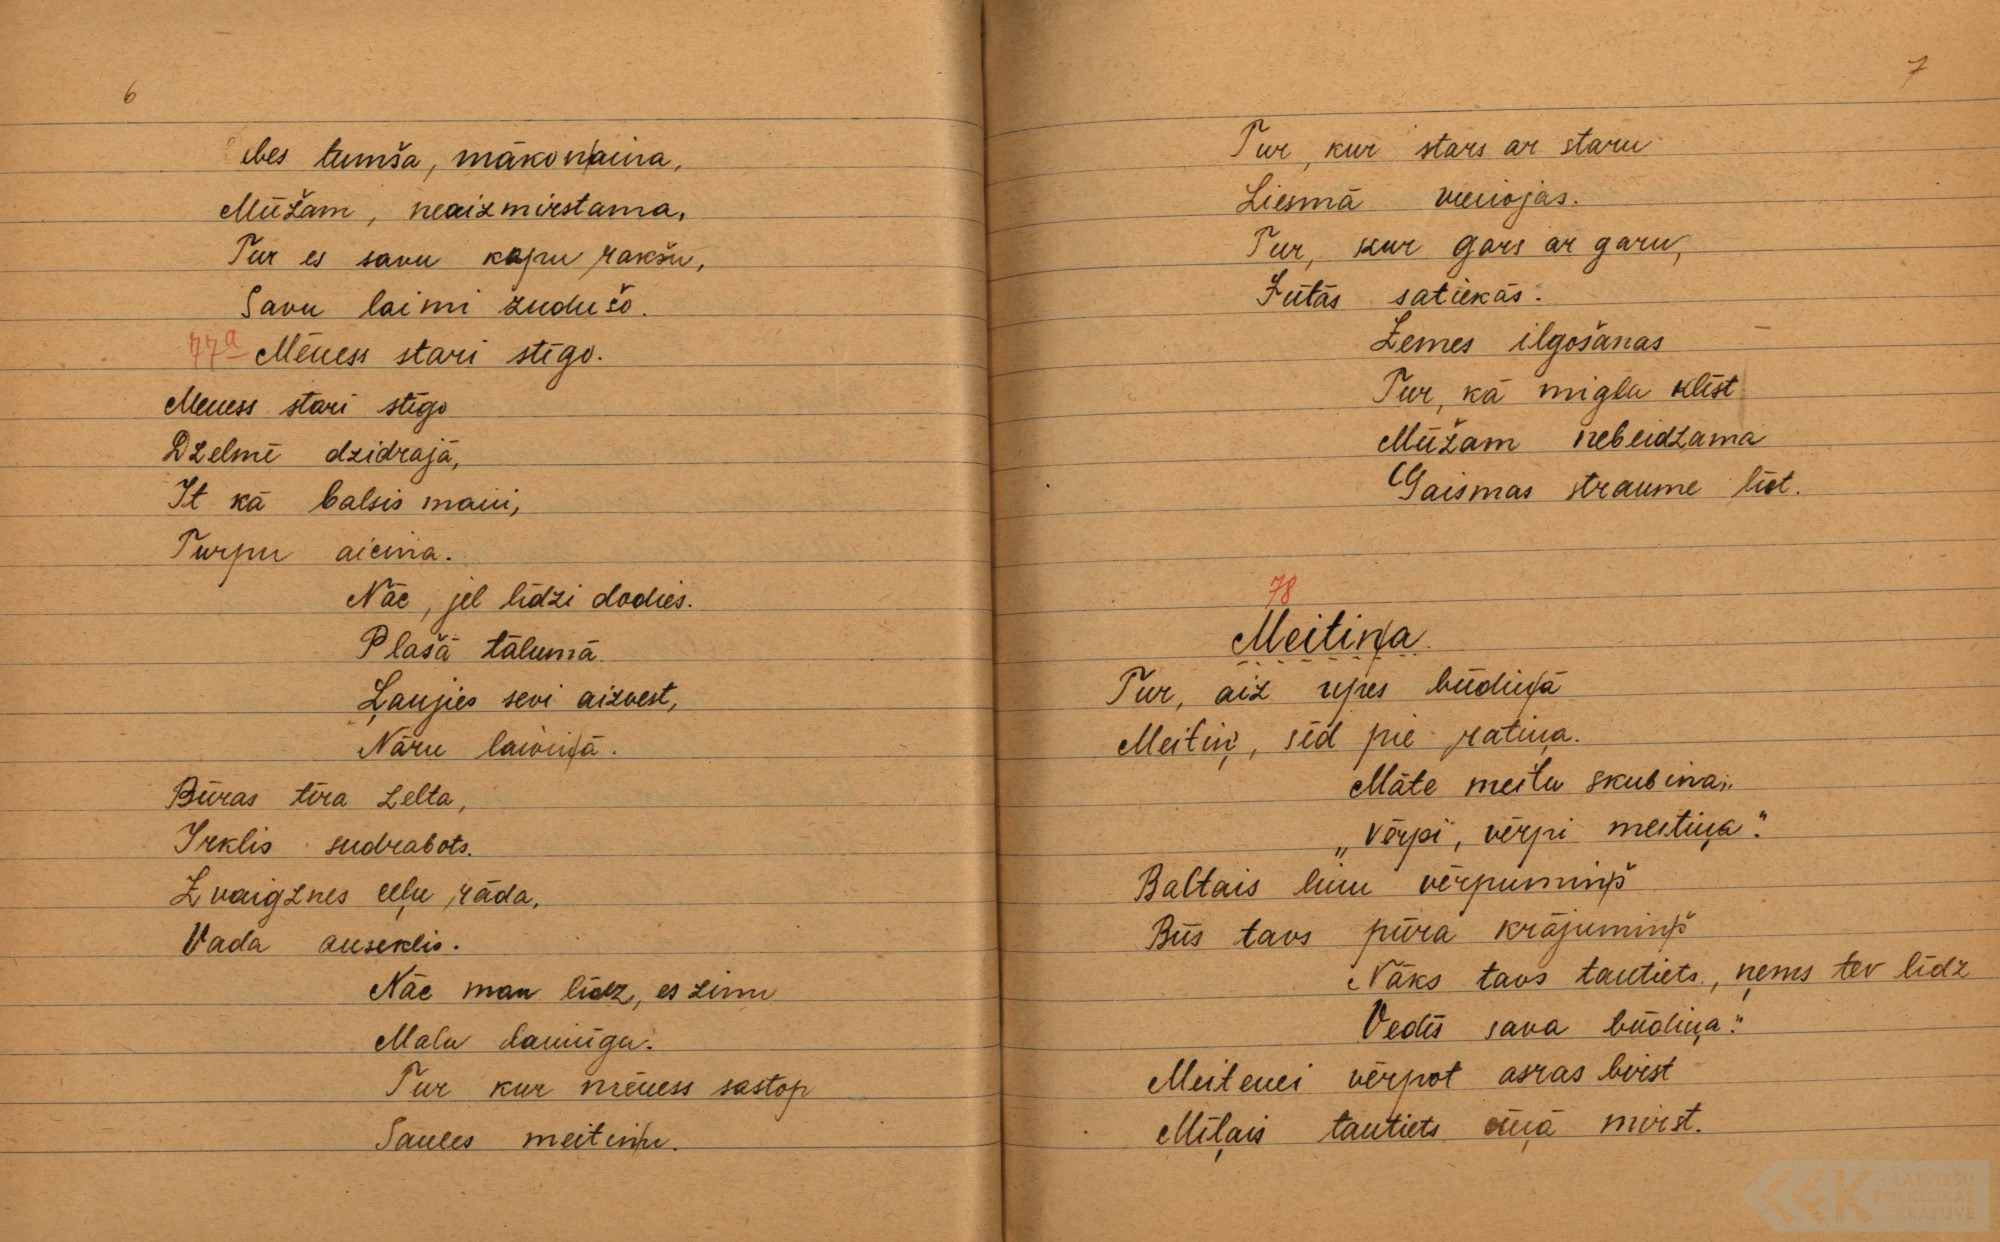 6
ebes tumša, mākoņaina,
Mūžam, neaizmirstama,
Tur es savu kapu rakšu,
Savu laimi zudušo.
77a Mēness stari stīgo.
Meness stari stīgo
Dzelmē dzidrajā,
It kā balsis maini,
Turpu aicina.
Nāc, jel līdzi dodies.
Plašā tālumā.
Ļaujies sevi aizvest,
Nāru laiviņā.
Būras tīra zelta,
Irklis sudrabots.
Zvaigznes ceļu rāda,
Vada auseklis.
Nāc man līdz, es zinu
Malu laimīgu.
Tur kur mēness sastop
Saules meitiņu.
7
Tur, kur stars ar staru
Liesmā vienojas.
Tur, kur gars ar garu,
Jūtās satiekās.
Zemes ilgošanas
Tur, kā migla klīst
Mūžam nebeidzama
Gaismas straume līst.
78
Meitiņa.
Tur, aiz upes būdiņā
Meitiņ, sēd pie ratiņa.
Māte meitu skubina:
„Vērpi, vērpi meitiņa."
Baltais linu vērpumiņš
Būs tavs pūra krājumiņš
Nāks tavs tautiets, ņems tev līdz
Vedīs sava būdiņa."
Meitenei vērpot asras birst
Mīļais tautiets ciņā mirst.
LATVIEŠU
FOLKLORAS
KRĀTUVE